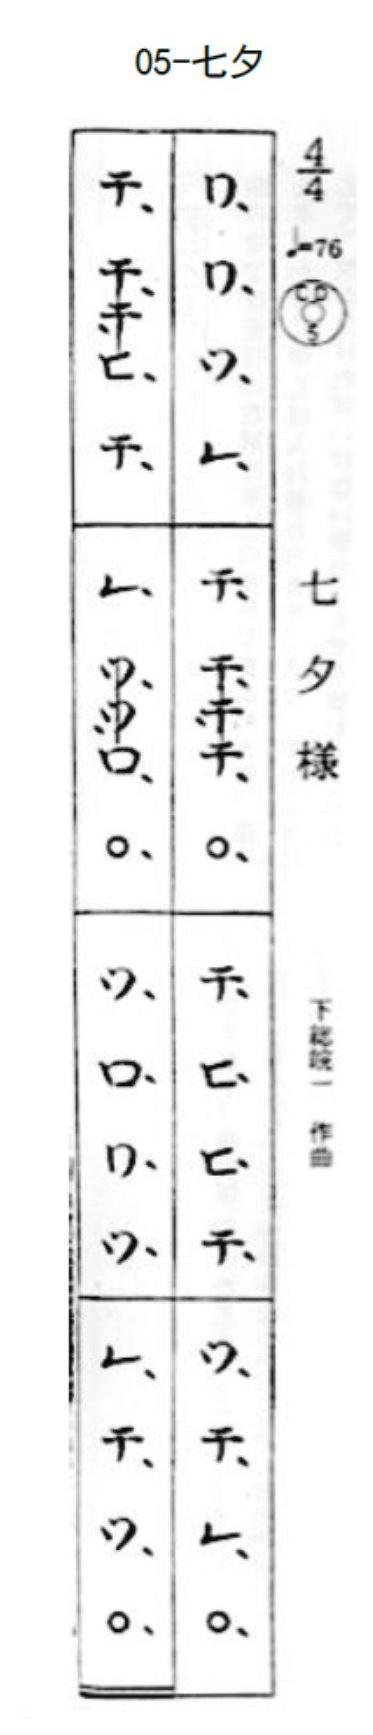 05-七夕
4/4 ♩=76 CD 5
七夕様 下総皖一 作曲
ワ、ワ、ツ、レ、チ、チ、チチ、○、チ、ヒ、ヒ、チ、ツ、チ、レ、○、
チ、チ、チヒ、チ、レ、ツ、ツロ、○、ツ、ロ、ワ、ツ、レ、チ、ツ、○、